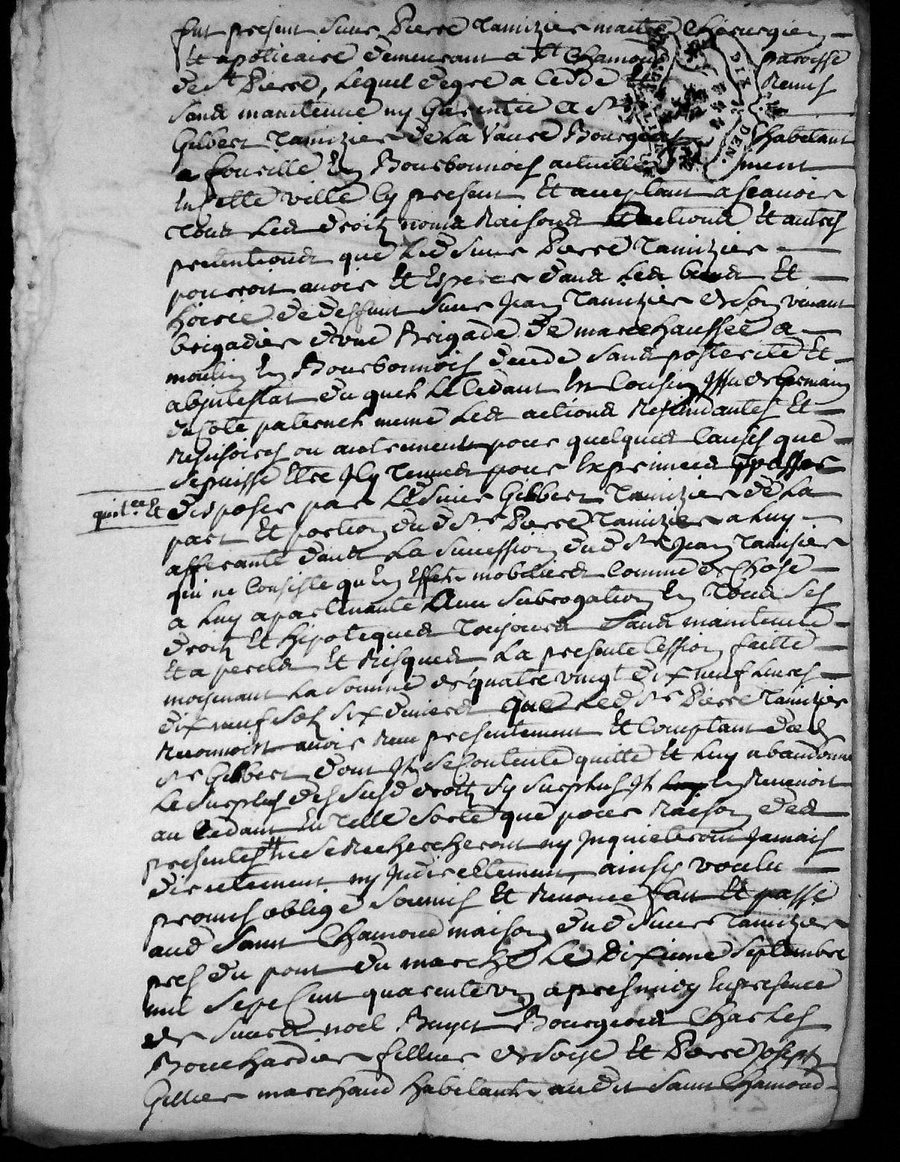 fut present sieur Pierre Tamizier maitre Chirurgien
Et apoticaire demeurant a St Chamond paroisse
de St Pierre, Lequel degre a cedde Et Remis
sans maintenue ny Garentie a Sr
Gilbert Tamizier de La Vaure Bourgeois habitant
a fouville En Bourbonnois actuellement
En cette ville Cy present Et acceptant a scavoir
Tous Les droits noms Raisons Et actions Et autres
pretentions que Led sieur Pierre Tamizier
pourroit avoir Et Esperer dans Les biens Et
hoirie de deffunt sieur Jean Tamizier de son vivant
brigadier d'une Brigade de marechaussée a
moulin En Bourbonnois decedé sans posterité Et
abjntestat du quel Le Cedant Est Cousin Jssu de Germain
du coté paternel meme Les actions Rescindantes Et
Rescisoires ou autrement pour quelques Causes que
se puisse Etre Jcy Tenues pour Exprimées
quitter Et
disposer par Led sieur Gilbert Tamizier de La
part Et portion dud Sr Pierre Tamizier a Luy
afferante dans La succession dud Sr Jean Tamizier
qui ne Consiste qu'En Effets mobiliers Comme de Chose
a Luy apartenante avec subrogation En Tous ses
droits Et hipoteques Toujours sans maintenue
Et a perils Et Risques La presente Cession faitte
moienant La somme de quatre vingt dix neuf Livres
dix neuf sols six deniers que Led Sr Pierre Tamizier
Reconnoit avoir Reçu presentement Et Comptant dud
Sr Gilbert dont Jl se Contente quitte Et Luy abandonne
Le surplus des susd droits sy surplus Jl Revenoit
au Cedant En Telle sorte que pour Raison des
presentes Jls ne se Rechercheront ny Jnquieteront Jamais
directement ny Jndirectement ainsy voulu
promis obligé soumis Et Renoncé fait Et passé
aud Saint Chamond maison dud sieur Tamizier
pres du pont du marché Le dixieme Septembre
mil sept Cent quarente un apres midy En presence
de sieurs noel Bourgeois Charles
Bouchardier fillieur de soye Et Pierre Joseph
Gillier marchand habitants audit Saint Chamond